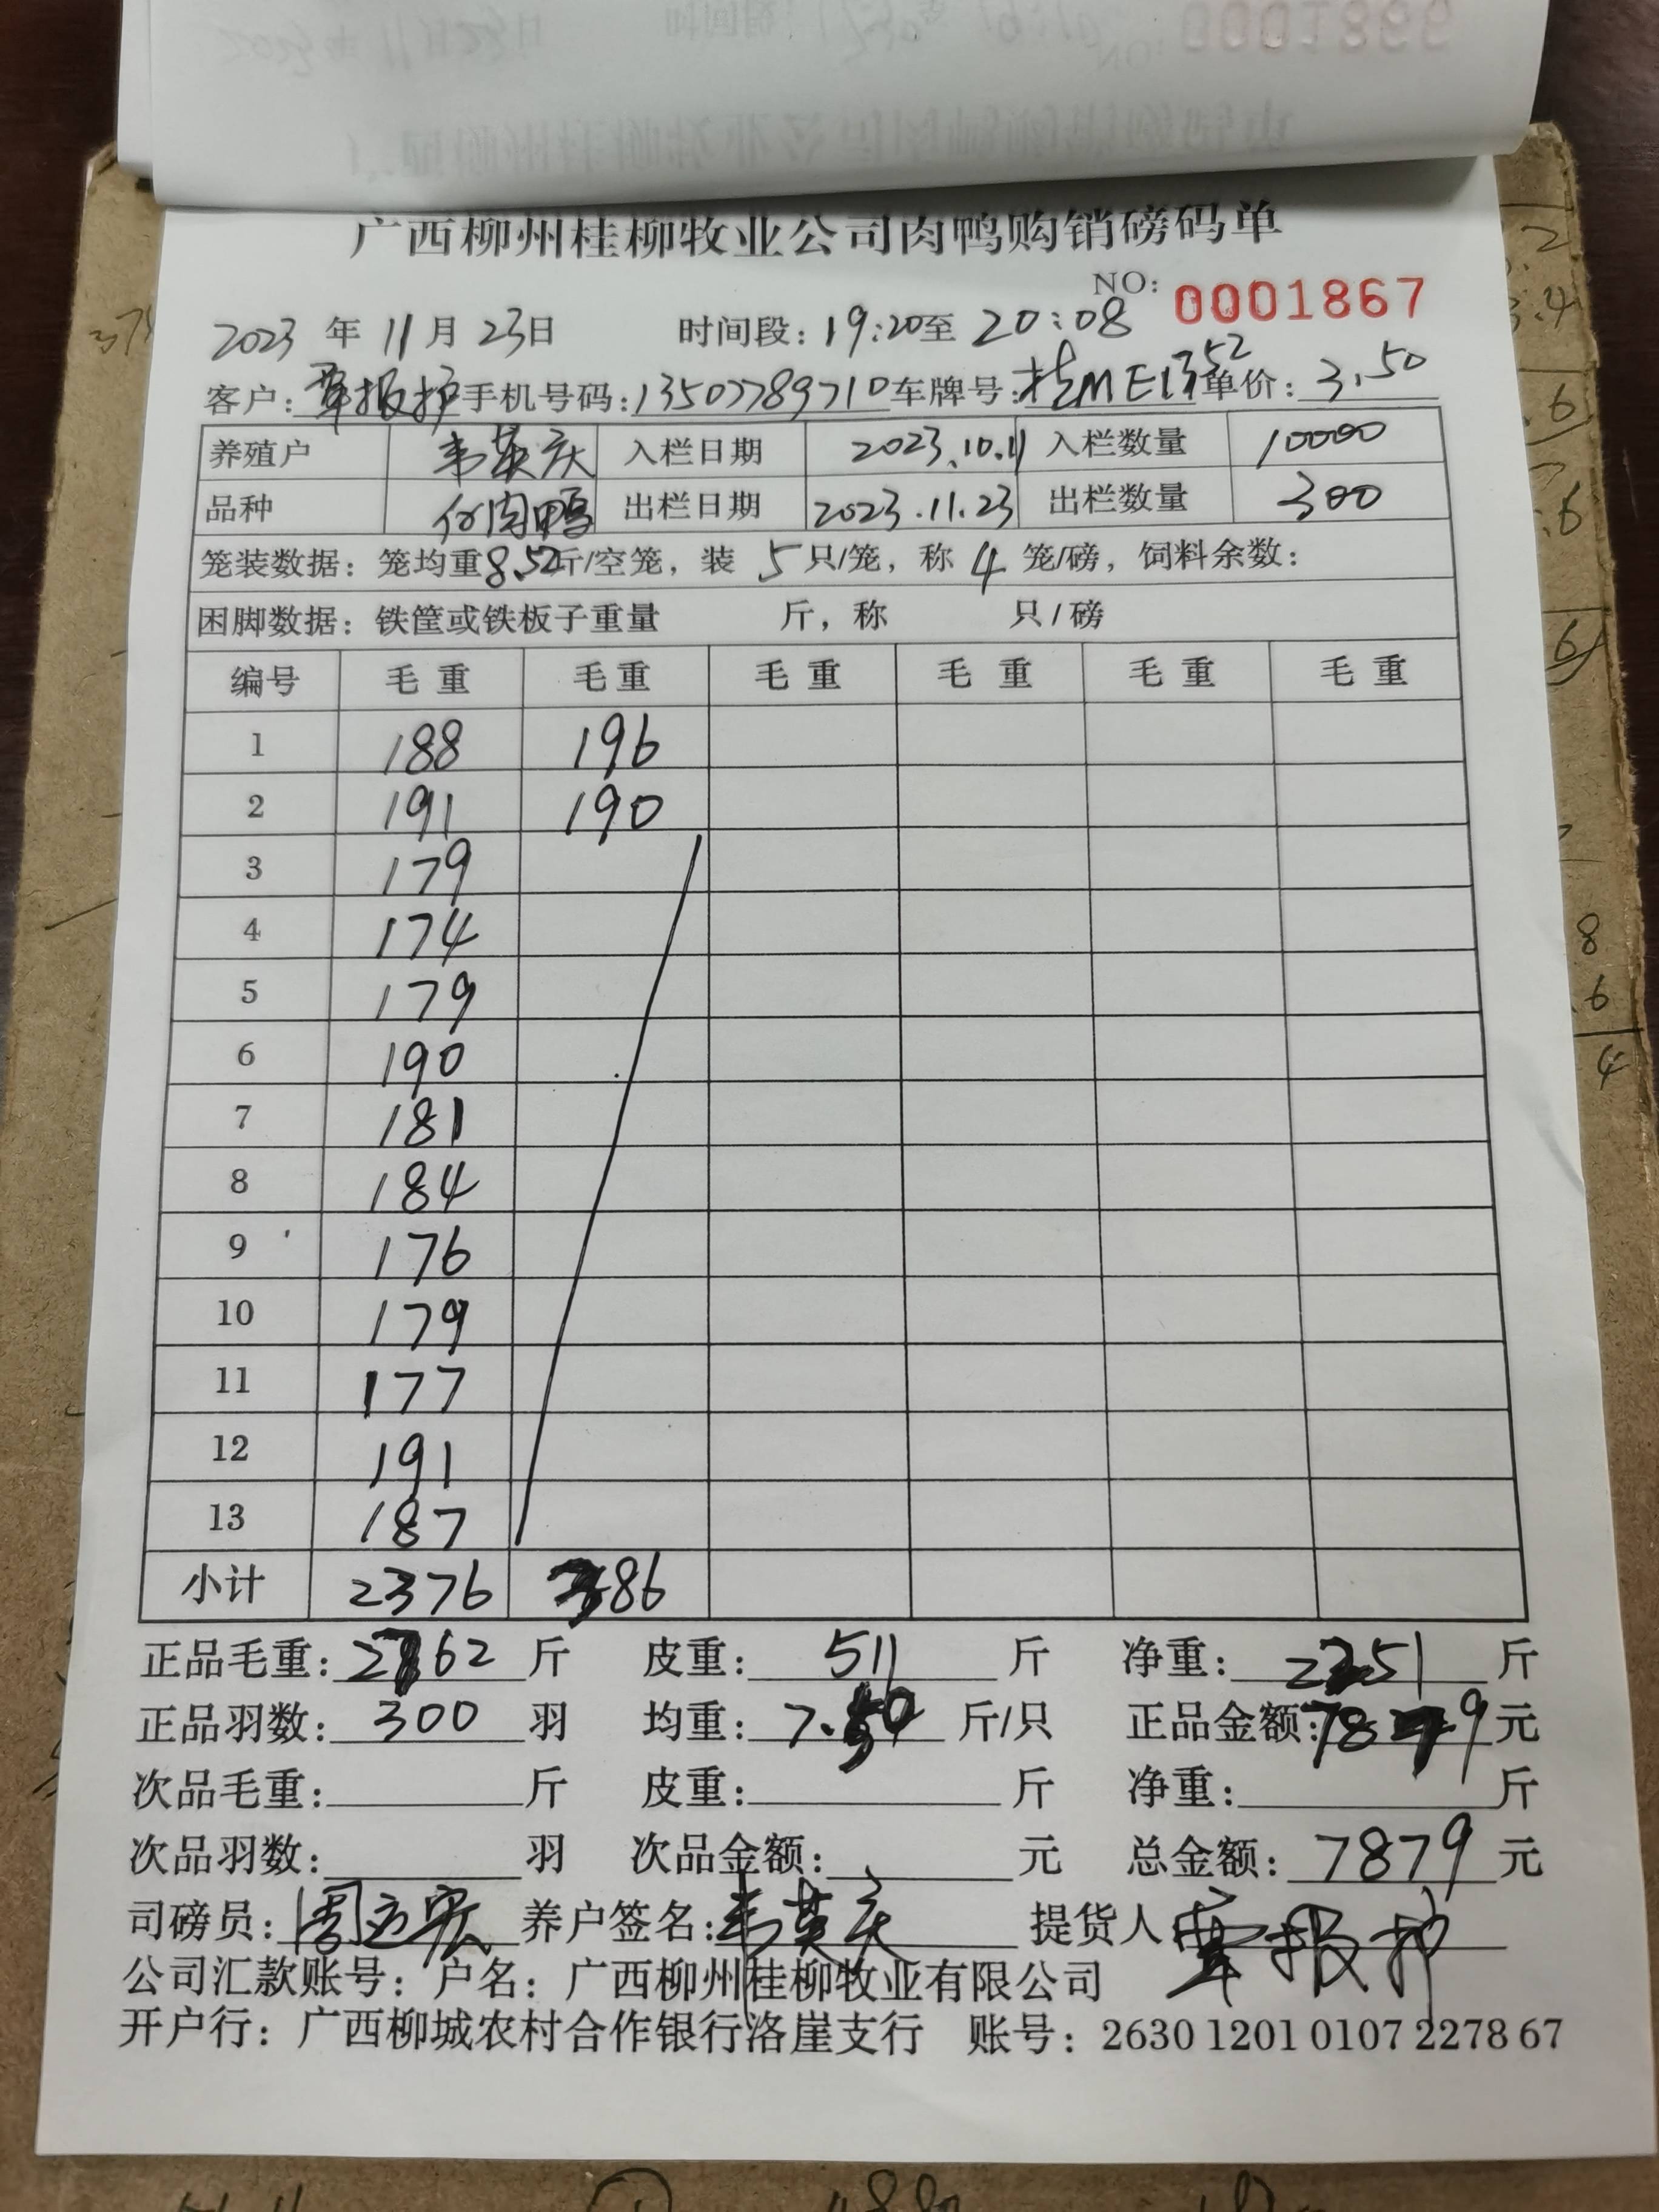 广西柳州桂柳牧业公司肉鸭购销磅码单
NO: 0001867
2023 年 11 月 23 日 时间段: 19:20 至 20:08
客户: 覃报护 手机号码: 13507789710 车牌号: 桂ME1352 单价: 3.50
养殖户 韦英庆 入栏日期 2023.10.11 入栏数量 10000
品种 肉鸭 出栏日期 2023.11.23 出栏数量 300
笼装数据: 笼均重 8.52 斤/空笼, 装 5 只/笼, 称 4 笼/磅, 饲料余数:
困脚数据: 铁筐或铁板子重量 斤, 称 只/磅
编号 毛重 毛重 毛重 毛重 毛重 毛重
1 188 196
2 191 190
3 179
4 174
5 179
6 190
7 181
8 184
9 176
10 179
11 177
12 191
13 187
小计 2376 386
正品毛重: 2762 斤 皮重: 511 斤 净重: 2251 斤
正品羽数: 300 羽 均重: 7.50 斤/只 正品金额: 7879 元
次品毛重: 斤 皮重: 斤 净重: 斤
次品羽数: 羽 次品金额: 元 总金额: 7879 元
司磅员: 周立宏 养户签名: 韦英庆 提货人 覃报护
公司汇款账号: 户名: 广西柳州桂柳牧业有限公司
开户行: 广西柳城农村合作银行洛崖支行 账号: 2630 1201 0107 2278 67